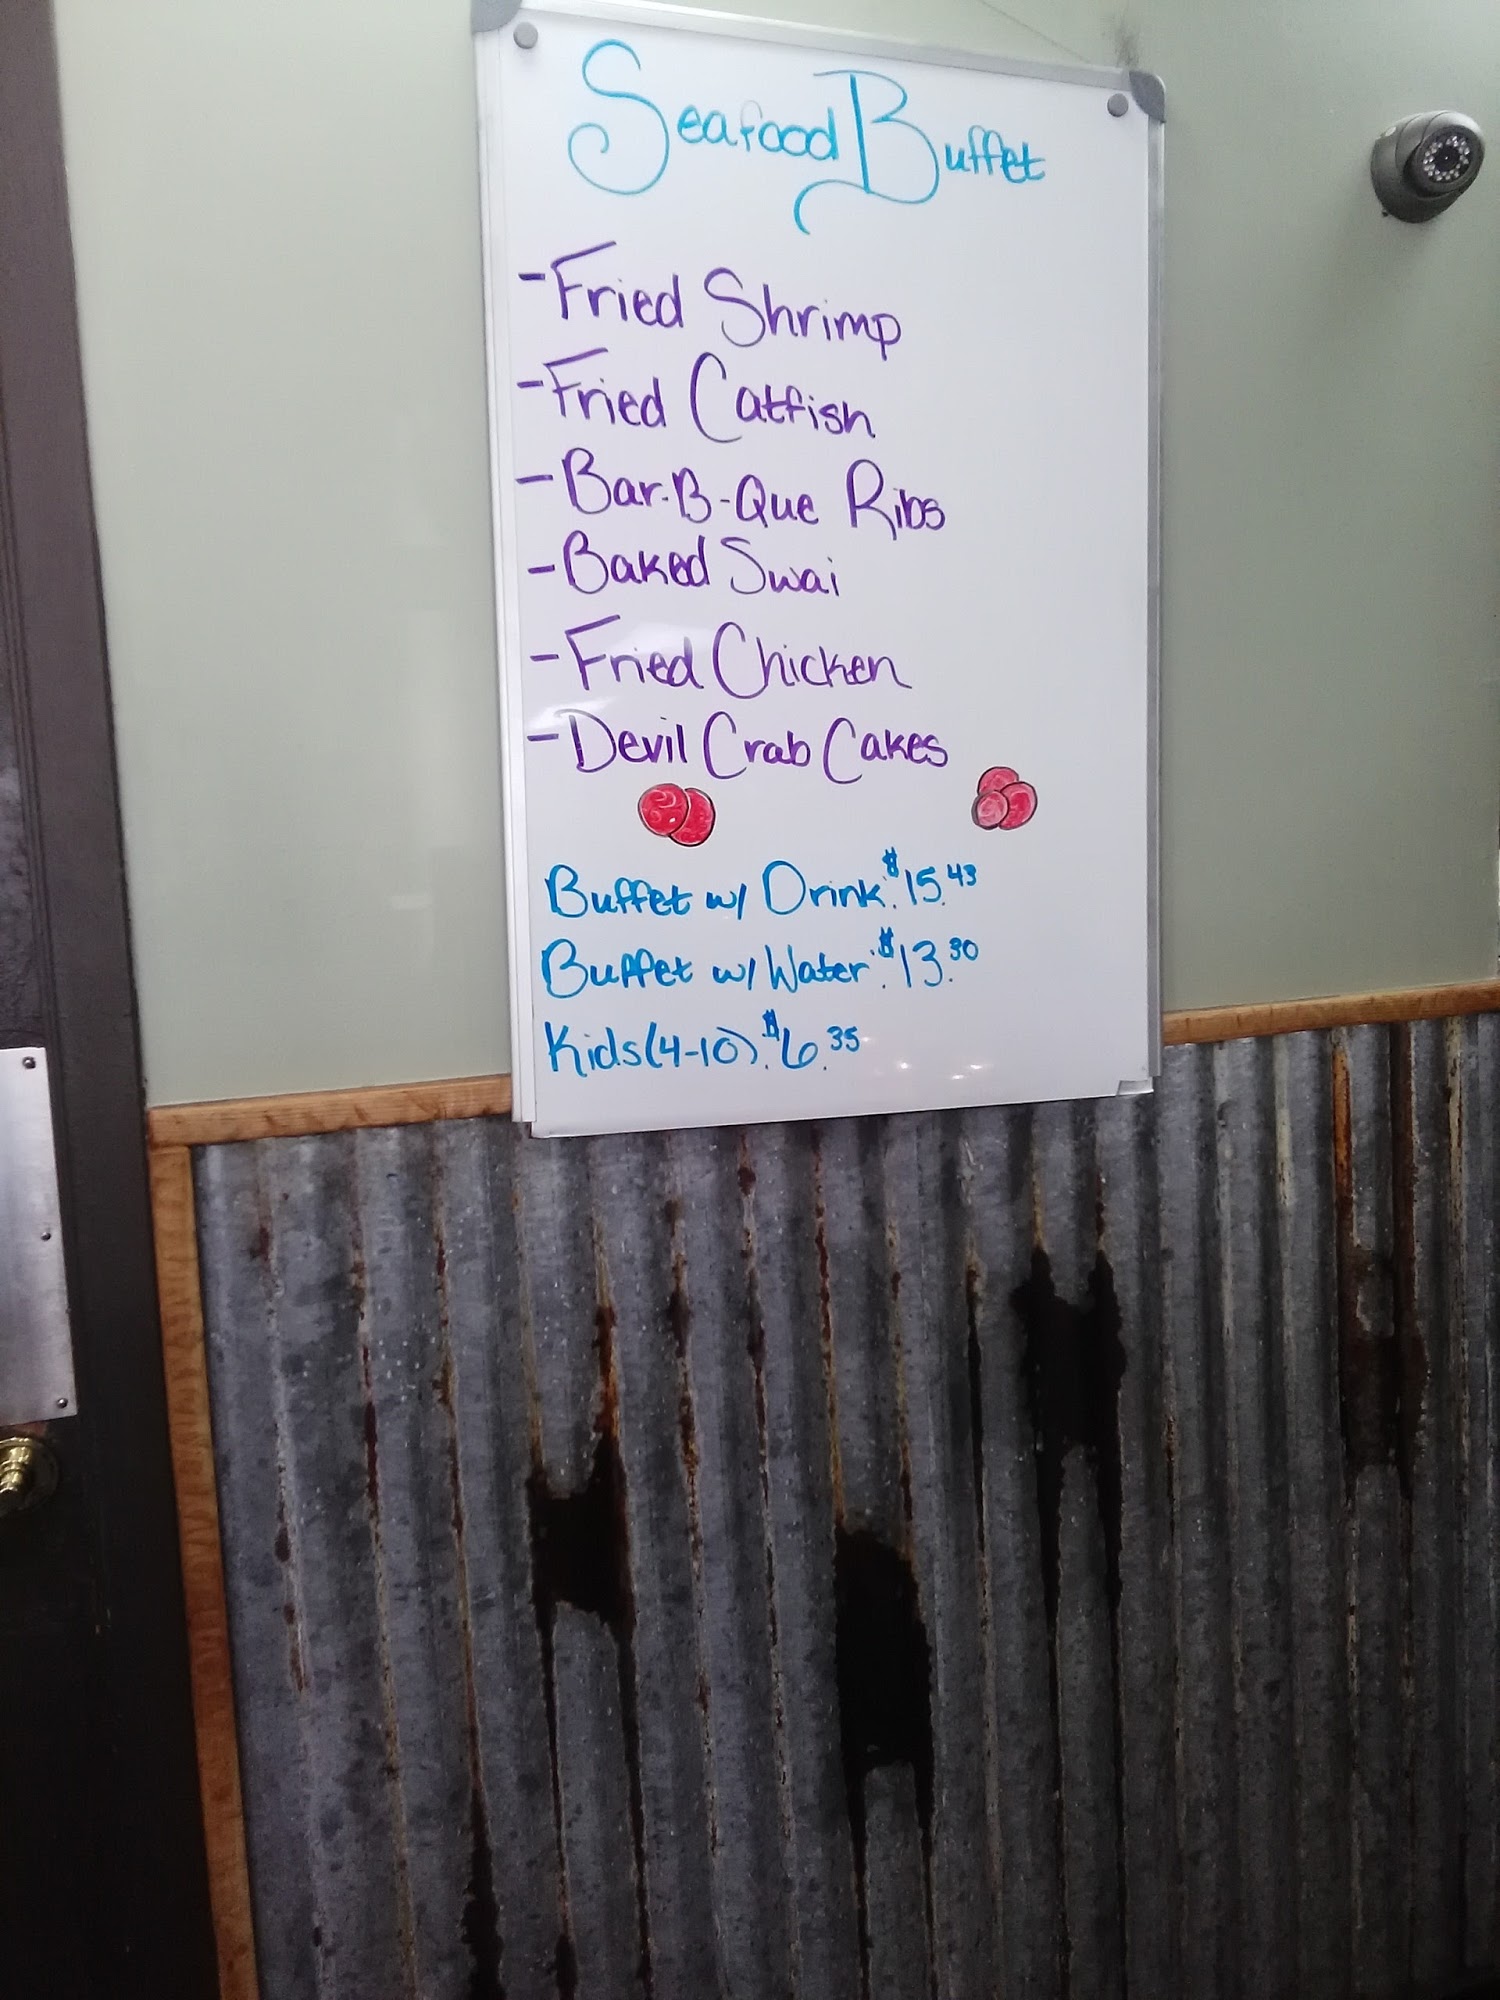 Seafood Buffet
- Fried Shrimp
- Fried Catfish
- Bar-B-Que Ribs
- Baked Swai
- Fried Chicken
- Devil Crab Cakes
Buffet w/ Drink: $15.43
Buffet w/ Water: $13.30
Kids (4-10): $6.35